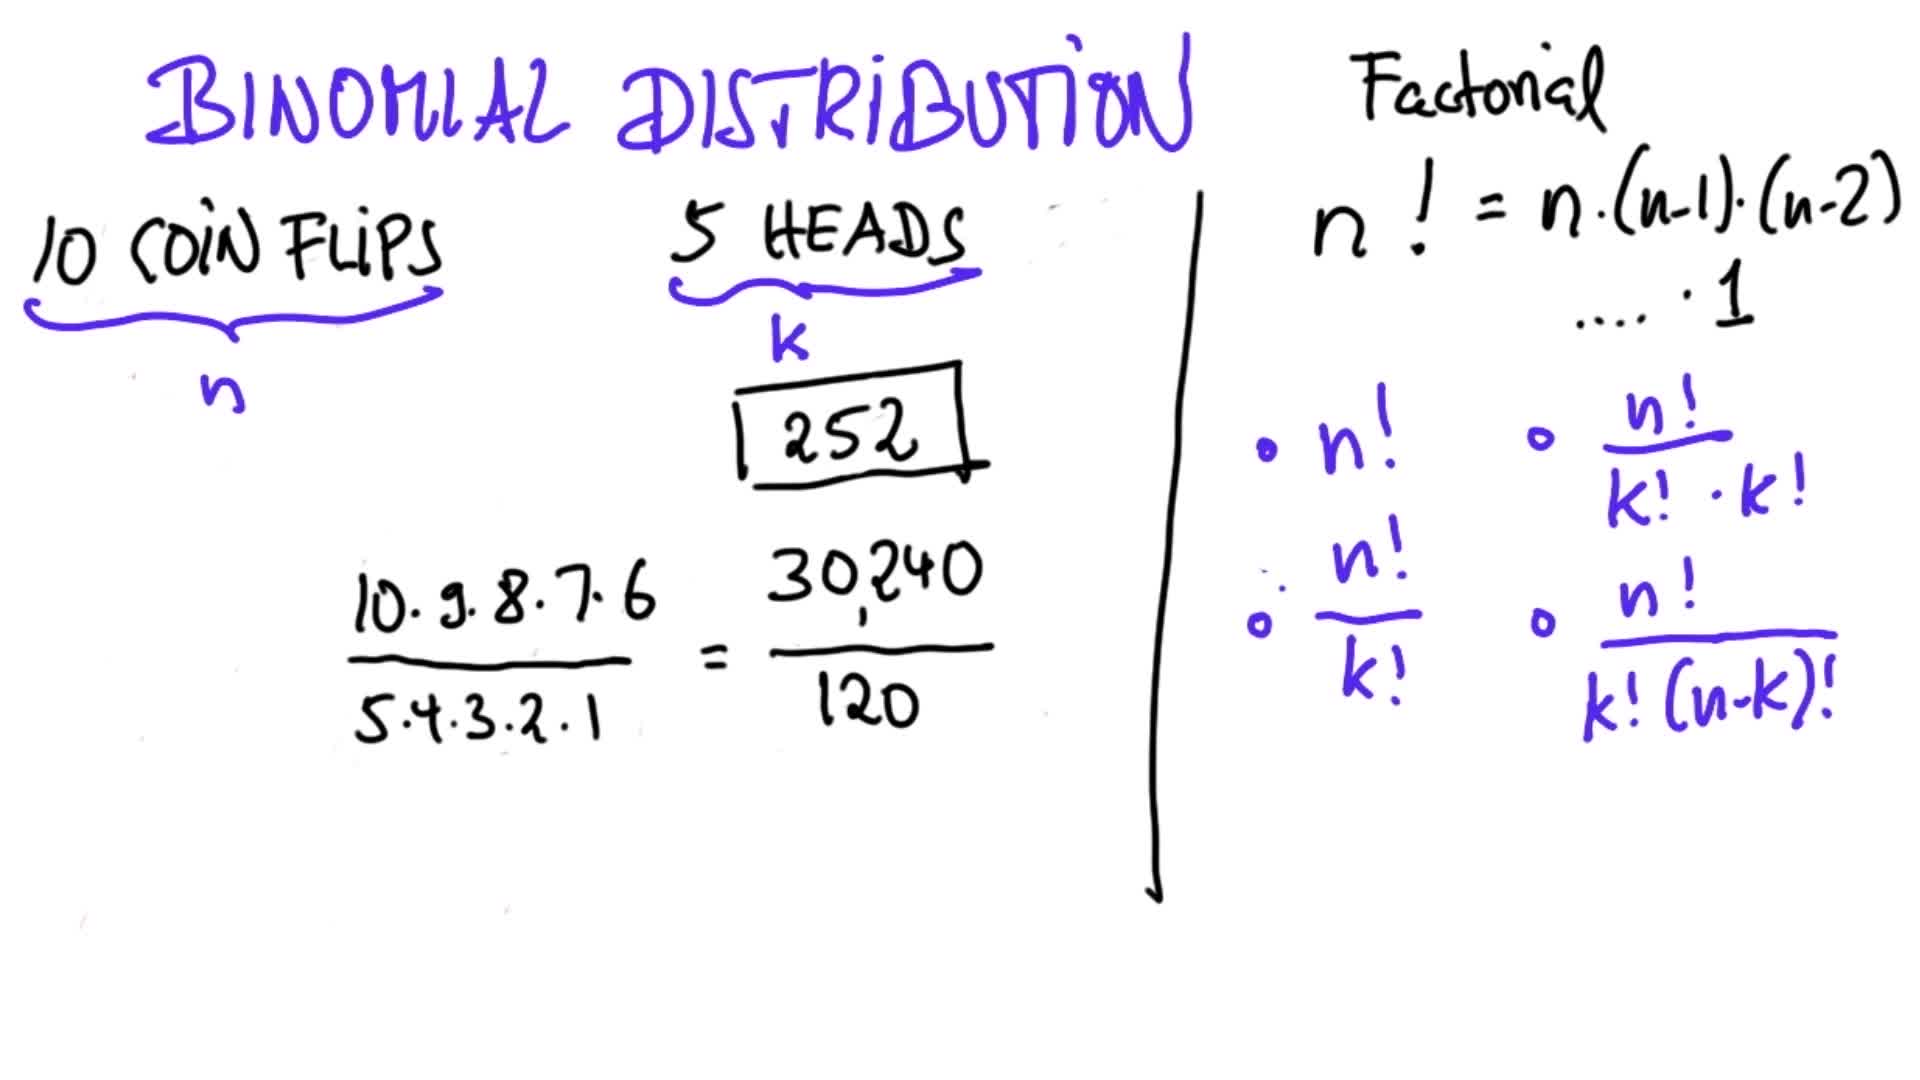 BINOMIAL DISTRIBUTION
10 COIN FLIPS
n
5 HEADS
k
252
10·9·8·7·6
5·4·3·2·1
=
30,240
120
Factorial
n! = n·(n-1)·(n-2)
.... · 1
n!
n!
k!
n!
k! · k!
n!
k! (n-k)!